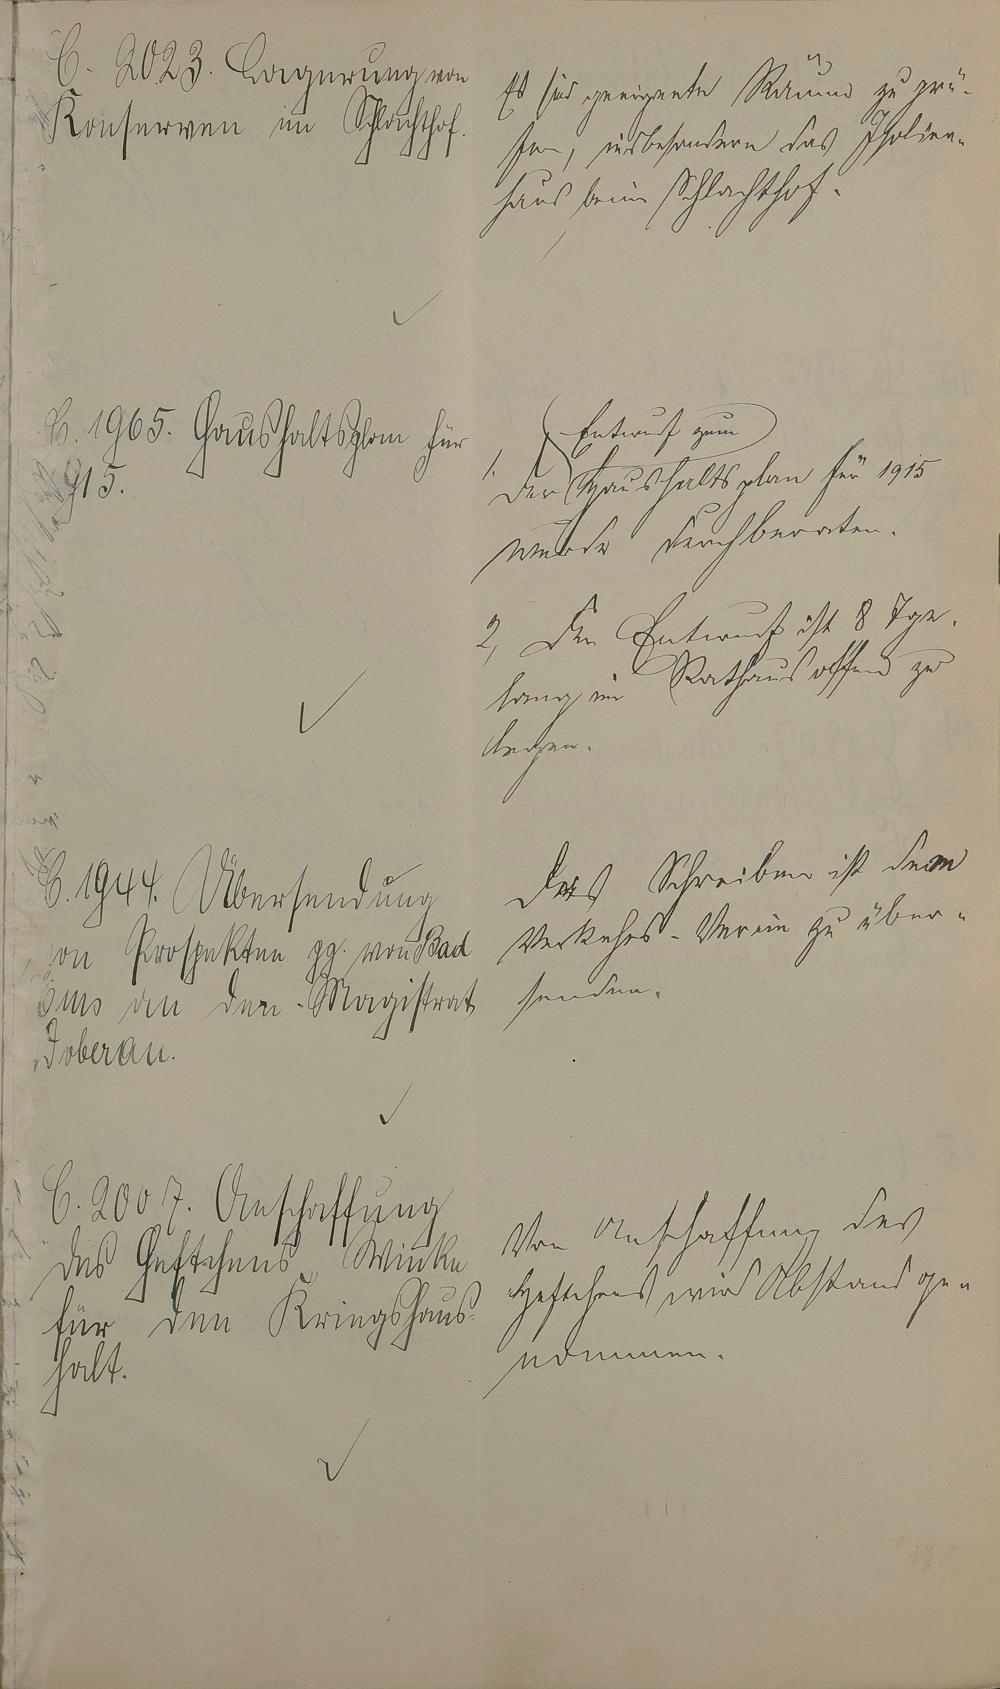 C. 2023. Lagerung von
Konserven im Schlachthof.
Es sind geeignete Räume zu prü-
fen, insbesondere das Isolier-
haus beim Schlachthof.
C. 1965. Haushaltsplan für
915.
Entwurf zum
1. Der Haushaltsplan für 1915
wurde durchberaten.
2, Der Entwurf ist 8 Tge.
lang im Rathaus offen zu
legen.
C. 1944. Übersendung
on Prospekten pp. von Bad
Ems an den Magistrat
Doberan.
Das Schreiben ist dem
Verkehrs-Verein zu über-
senden.
C. 2007. Anschaffung
des Heftchens, Winke
für den Kriegshaus-
halt.
Von Anschaffung des
Heftchens wird Abstand ge-
nommen.